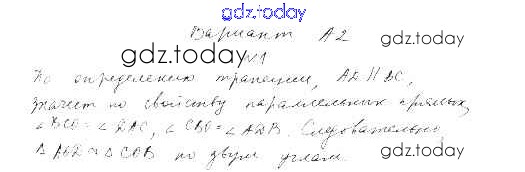 gdz.today
Вариант А2
gdz.today
gdz.today
N1
По определению трапеции, AD || BC,
gdz.today
значит по свойству параллельных прямых,
∠BCO = ∠DAC, ∠CBO = ∠ADB. Следовательно,
Δ AOD ~ Δ COB по двум углам.
gdz.today
gdz.today